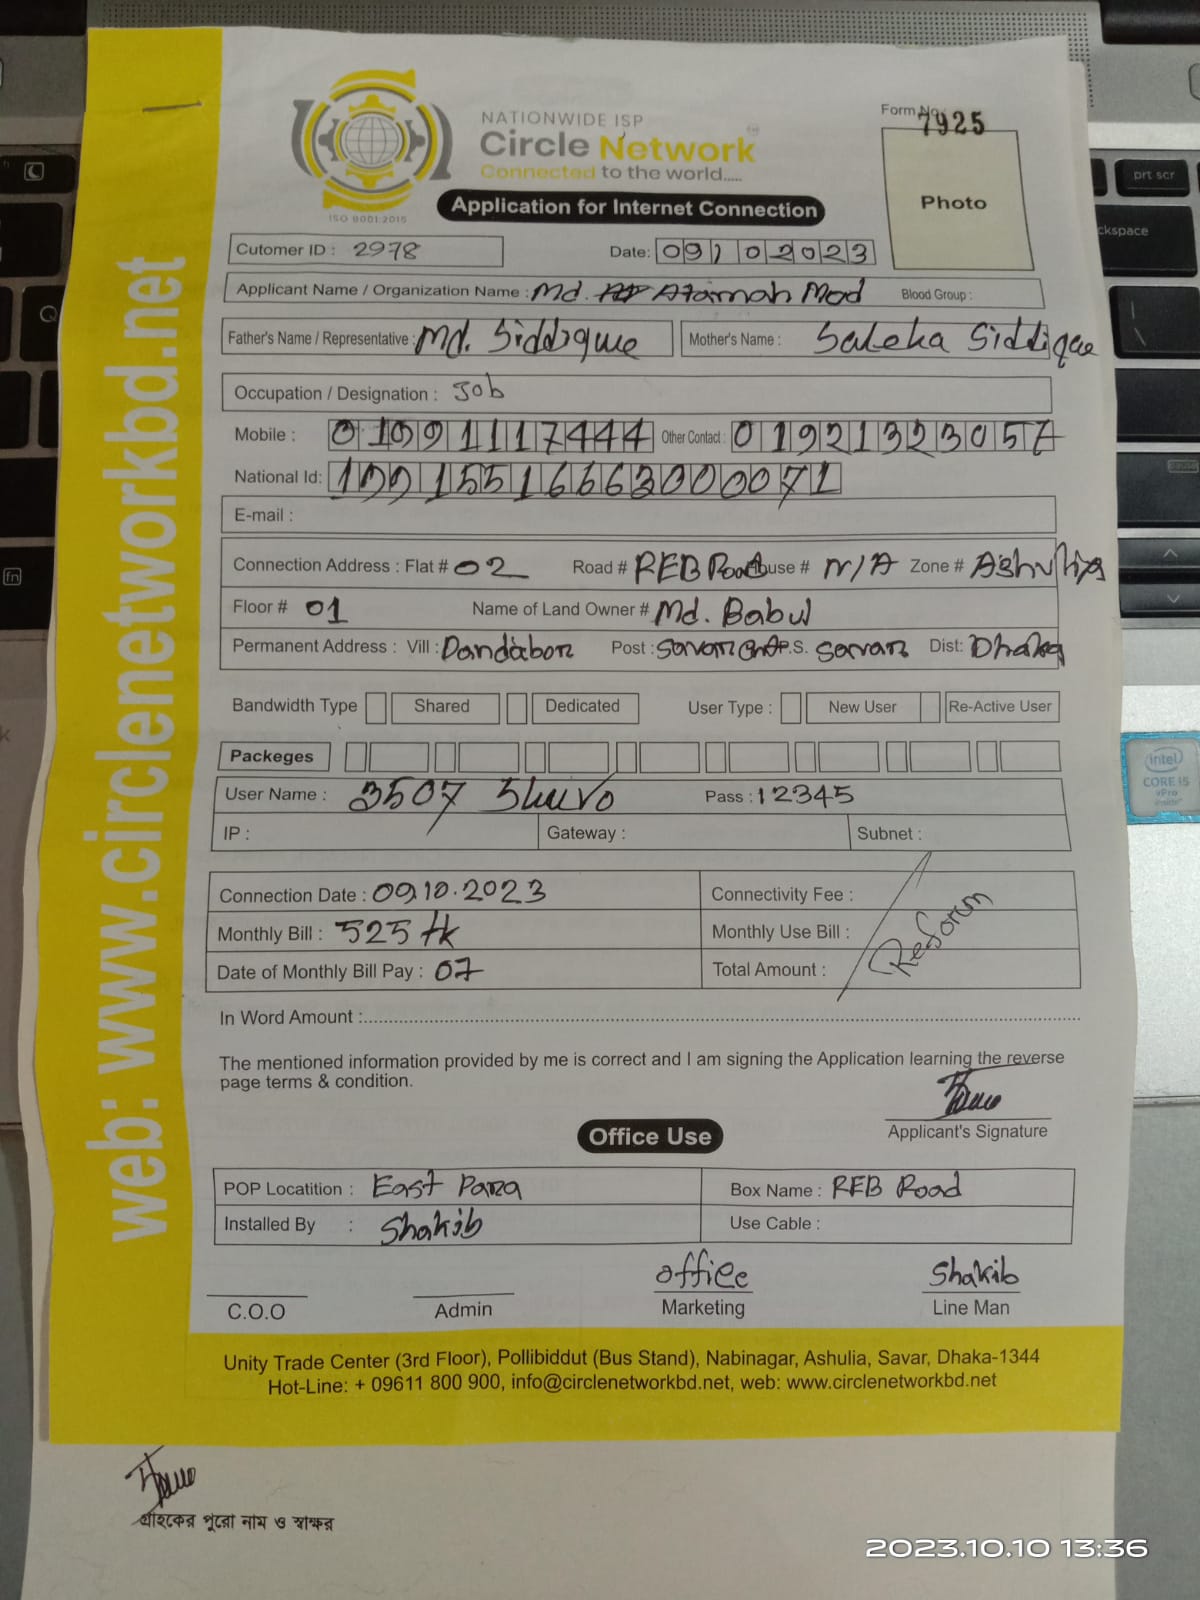 NATIONWIDE ISP
Circle Network
Connected to the world.....
ISO 9001:2015
Form No. 7925
Photo
Application for Internet Connection
Cutomer ID : 2978 Date: 09 10 2023
Applicant Name / Organization Name : Md. Blood Group :
Father's Name / Representative : Md. Siddique Mother's Name : Saleha Siddique
Occupation / Designation : Job
Mobile : Other Contact : 01921323057
National Id: 19915516663000071
E-mail :
Connection Address : Flat # 02 Road # REB Road House # N/A Zone # Ashuliya
Floor # 01 Name of Land Owner # Md. Babul
Permanent Address : Vill : Dandabor Post : Savar P.S. Savar Dist: Dhaka
Bandwidth Type Shared Dedicated User Type : New User Re-Active User
Packeges
User Name : 3507 Shuvo Pass : 12345
IP : Gateway : Subnet :
Connection Date : 09.10.2023 Connectivity Fee :
Monthly Bill : 525 tk Monthly Use Bill :
Reform
Date of Monthly Bill Pay : 07 Total Amount :
In Word Amount :
The mentioned information provided by me is correct and I am signing the Application learning the reverse
page terms & condition.
Applicant's Signature
Office Use
POP Locatition : East Para Box Name : REB Road
Installed By : Shakib Use Cable :
office Shakib
C.O.O Admin Marketing Line Man
Unity Trade Center (3rd Floor), Pollibiddut (Bus Stand), Nabinagar, Ashulia, Savar, Dhaka-1344
Hot-Line: + 09611 800 900, info@circlenetworkbd.net, web: www.circlenetworkbd.net
web: www.circlenetworkbd.net
গ্রাহকের পুরো নাম ও স্বাক্ষর
2023.10.10 13:36
prt scr
ckspace
fn
intel
CORE i5
vPro
inside